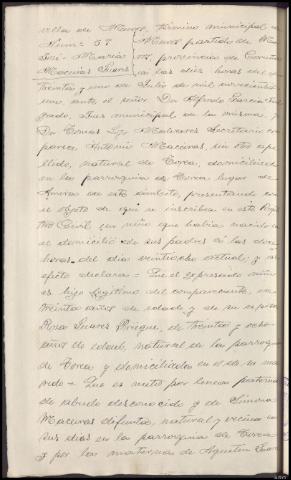 villa de Muros, término municipal de
Núm. 57 Muros partido de Mu
José María ros, provincia de Coruña
Maceiras Suárez á las diez horas del
treinta y uno de Julio de mil novecientos
uno, ante el señor Don Alfredo García
gado, Juez municipal de la misma, y
Don Tomás Malvarez Secretario com
parece, Antonio Maceiras, sin otro ape
llido, natural de Torea, domiciliado
en la parroquia de Torea lugar de
en este distrito, presentando con
el objeto de que se inscriba en este Regis
tro Civil un niño que había nacido en
el domicilio de sus padres á las doce
horas del día veintiocho actual; y al
efecto declara = Que el expresado niño
es hijo legítimo del compareciente, de
treinta años de edad, y de su esposa
Rosa Suarez de treinta y ocho
años de edad, natural de la parroquia
de Torea y domiciliada en el de su ma
rido = Que es nieto por linea paterna
de abuelo desconocido y de Simona
Maceiras difunta, natural y vecina en
sus días en la parroquia de Torea
y por la materna de Agustín Suarez